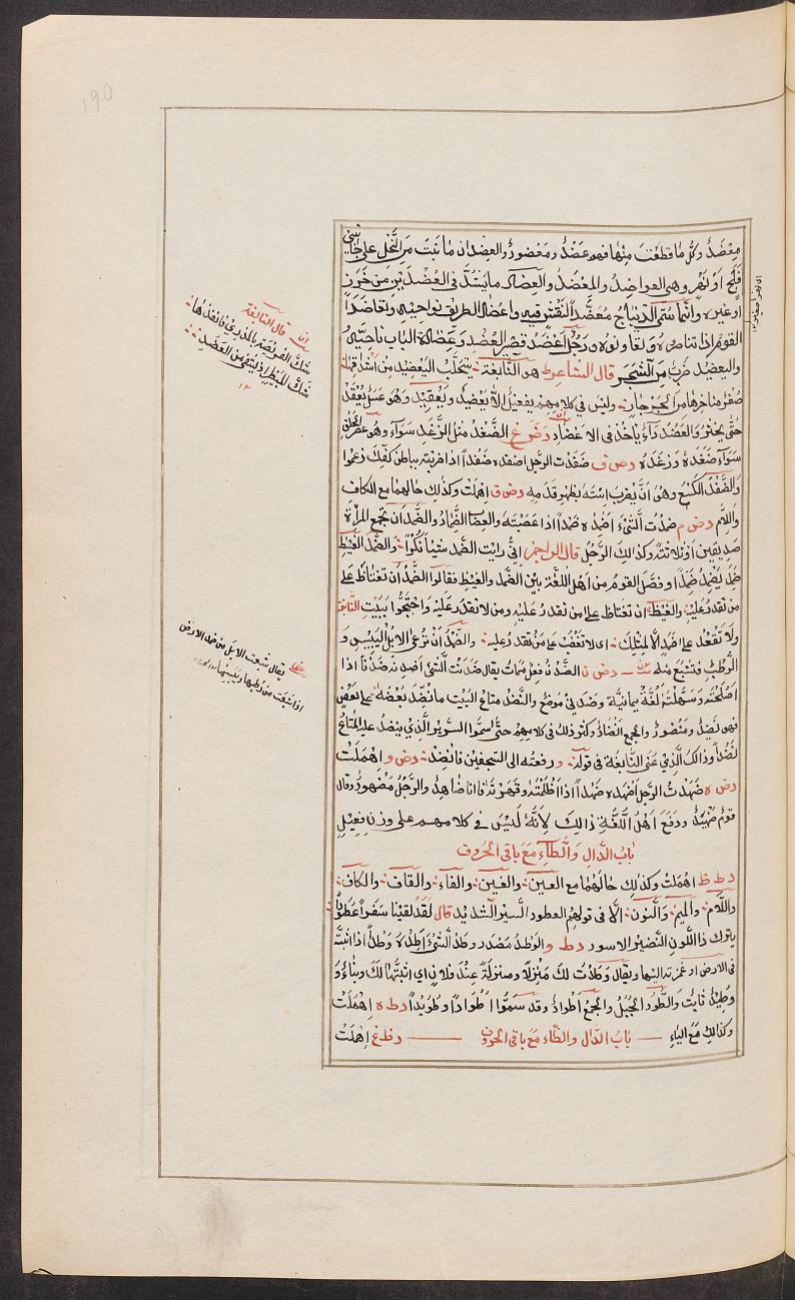 مِعْضَدٌ وكلُّ ما قطعْتَ مِنْها فهو عَضْدٌ ومعضودٌ والعِضدان ما نَبَتَ مِنَ النَّخل على جانبَي
فَلَجٍ اَوْ نَهْرٍ وهى العواضِدُ والمِعْضَد والعِضاد ما يُشَدُّ فى العَضُدَيْنِ من خَرَزٍ
او غيره وانَّما سُمّى الدّيباج مُعَضَّداً لنَقْشٍ فيه واعضاد الطريق نواحيه وتعاضَدَ
القوم اذا تناصروا وتعاونوا ورجُلٌ اَعْضَدُ قصير العَضُد وعضادة الباب ناحيتُهُ
واليعضيد ضربٌ مِنَ الشَّجَر قال الشاعر هو النّابغة يتحلَّبُ اليَعْضيد من اَشداقِها
صُفْرٌ مناخرها مِنَ الجَرْجارِ وليس فى كلامهم يفعيلٌ الّا يَعْضيدٌ ويَعْقيدٌ وهو عَسَلٌ يُعْقَدُ
حتّى يخثر والعَضَد داءٌ ياْخذ فى الاعضاد د ض غ الضَّغْد مثل الزَّغْد سواء وهو عصر الحلق
سواء ضَغَدَهُ وزَغَدَهُ د ض ف ضَفَدْت الرّجل اضفِده ضَفْداً اذا ضربته بباطن كفّك زعموا
والضَّفْد الكَسْعُ وهو اَنْ يَضْرِبَ اِسْتَهُ بظهر قدَمِهِ د ض ق اهمِلَتْ وكذلك حالهما مع الكاف
واللّام د ض م ضمَدْت الشّىء اَضْمِدُه ضَمْداً اذا عصَبْتَهُ والعِصابُ الضِّماد والضَّمْد اَنْ تجمع المراة
صديقين اَوْ ثلاثةً وكذلك الرَّجُل قال الراجز اِنّى رايت الضَّمْد شيئاً نُكْراً والضَّمَد الغَيْظ
ضَمِدَ يَضْمَدُ ضَمَداً وفصَّل القوم من اهل اللّغة بين الضَّمَد والغَيْظ فقالوا الضَّمَد اَن تغتاظ على
من تقدر عليه والغَيْظ اَن تغتاظ على من تقدر عليه ومن لا تقدر عليه واحتجّوا ببيت النّابغة
ولا تَقْعُد على ضَمَدٍ الّا لمثلك اى لا تَغْضَبْ على مَنْ تقدر عليه والضَّمْد اَنْ تَرْعى الابل اليَبيس و
الرُّطب فتشبع منه د ض ن الضَّدْن فعل مُمات يقال ضَدَنْت الشّىء اَضدِنه ضَدْناً اذا
اَصْلَحْته وسَهَّلْتَهُ لُغَةٌ يمانيّة وضَدَنى موضعٌ والنَّضَد متاع البيت ما نُضِدَ بَعْضُهُ على بعضٍ
فهو نَضيد ومنضودٌ والجمع اَنْضاد وكثر ذلك فى كلامهم حتّى سمّوا السَّرير الّذى ينضد عليه المتاع
نَضَداً وذالك الّذى عَنى النّابغة فى قوله ورفعته الى السّجفين فالنّضد د ض و اهملت
د ض ه ضَهَدْتُ الرّجل اَضْهَده ضَهْداً اذا ظَلَمْتَهُ وقَهَرْتَهُ فانا ضاهِدٌ والرَّجُل مَضْهودٌ وقال
قومٌ ضَهْيَدٌ ودفَعَ اهل اللُّغَة ذالك لِاَنَّهُ لَيْسَ فى كلامهم على وزن فَعْيَلٍ
بابُ الدّال والطّاء مَعَ باقى الحُروف
د ط ظ اهملت وكذلك حالهما مع العين والغين والفاء والقاف والكاف
واللّام والميم والنّون الّا فى قولهم العطود السَّير الشّديد قال لَقَدْ لقينا سَفَراً عَطَوَّداً
يترك ذا اللّون النّضير الاسود د ط و الوَطْدُ مَصْدر وطَدْ الشّىءَ اَطِدُهُ وَطْداً اذا اثبتَّهُ
فى الارض او غمزته اليها ويقال وَطَّدْتُ لك مَنْزِلاً ومنزلةً عِنْدَ فلانٍ اى اثبتُّها لك وبناءٌ
وطيدٌ ثابتٌ والطَّوْد الجَبَلُ والجمع اطوادٌ وقد سَمَّوا اطواداً وطُوَيْداً د ط ه اهملت
وكذالك مَعَ الياءِ باب الدّال والظّاء مع باقى الحروف د ظ ع اهملت
قال النّابغة
شكَّ الفريصة بالمدرى فانفذها
شكَّ المبيطر اذ يشفى من العضد
يقال شبعت الابل من ضمد الارض
اذا شبعت من رطبها ويبيسها
190